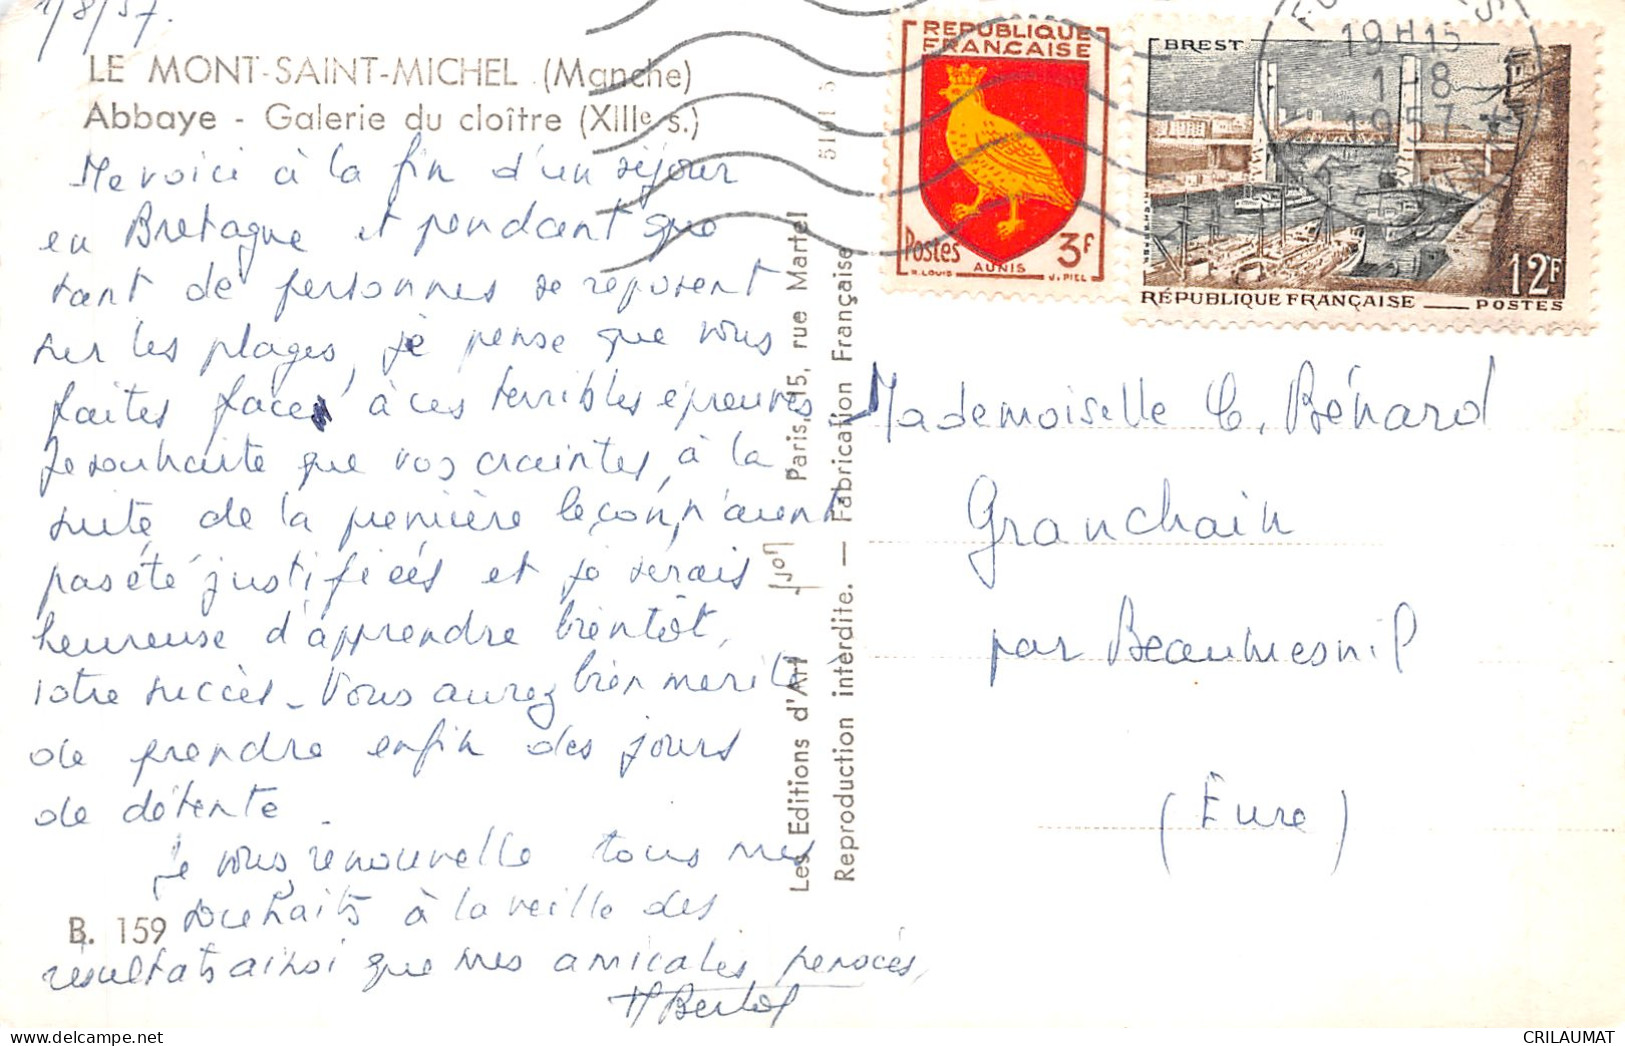 1/8/57.
LE MONT-SAINT-MICHEL (Manche)
Abbaye - Galerie du cloître (XIIIe s.)
Me voici à la fin d'un séjour
en Bretagne et pendant que
tant de personnes se reposent
sur les plages, je pense que vous
faites face à ces terribles épreuves
Je souhaite que vos craintes, à la
suite de la première leçon, n'aient
pas été justifiées et je serais
heureuse d'apprendre bientôt,
votre succès - Vous aurez bien mérité
de prendre enfin des jours
de détente.
Je vous renouvelle tous mes
souhaits à la veille des
résultats ainsi que mes amicales pensées,
B. 159
Les Editions d'Art Yvon Paris, 15, rue Martel
Reproduction interdite. — Fabrication Française
REPUBLIQUE
FRANCAISE
Postes 3F
AUNIS
H. LOUIS J. PIEL
BREST
12F
RÉPUBLIQUE FRANÇAISE POSTES
19H15
1-8
1957
Mademoiselle C. Bénard
Granchain
par Beaumesnil
(Eure)
CRILAUMAT